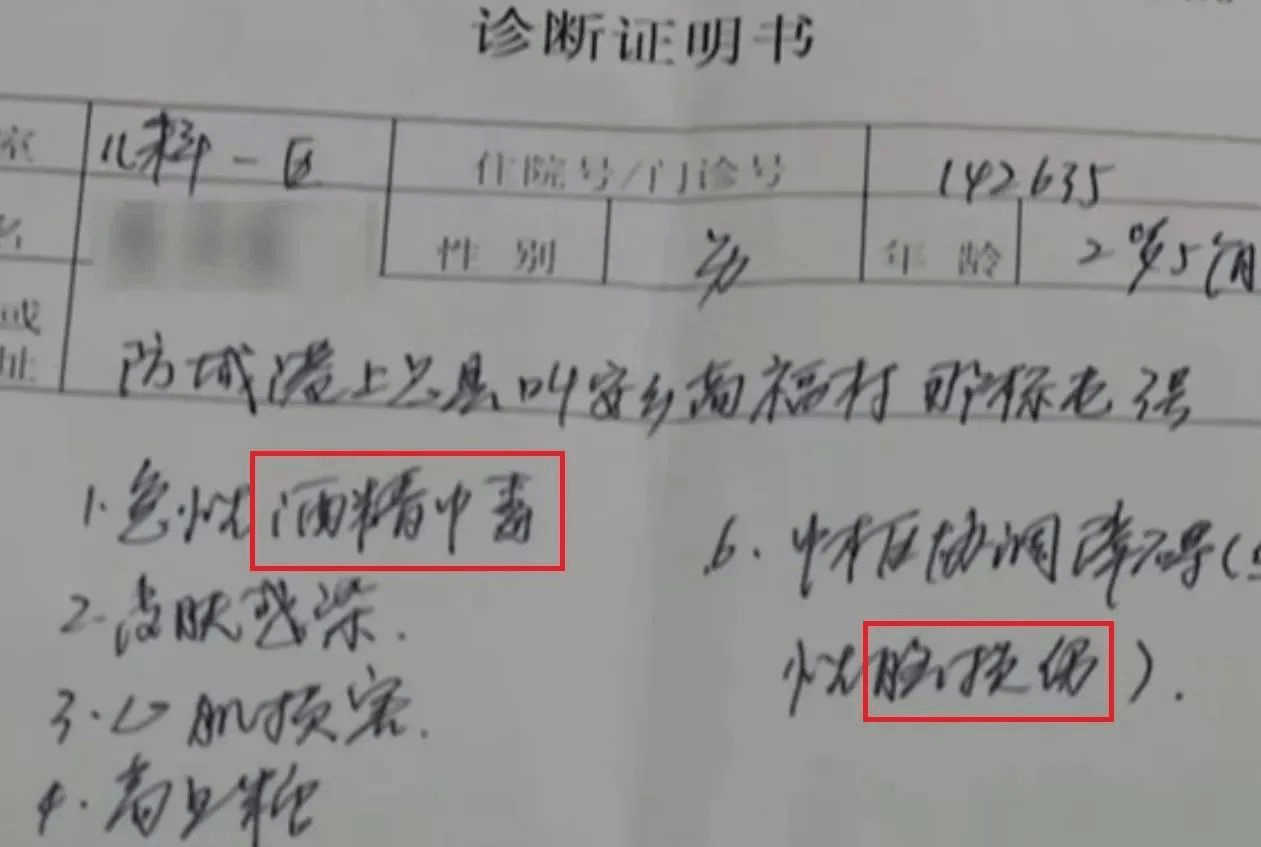 诊断证明书
儿科一区 住院号/门诊号 142635
性别 男 年龄 2岁5个月
防城港上思县叫安乡
1.急性酒精中毒
2.皮肤感染.
3.心肌损害.
4.高血糖
6.中枢协调障碍(
性脑损伤).